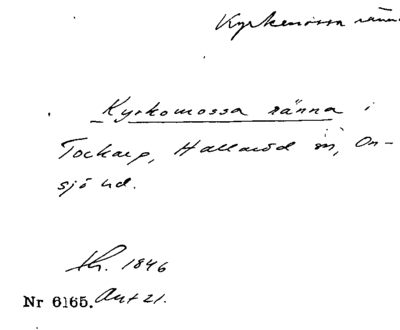 Kyrkemossa ränna
Kyrkomossa ränna i
Tockarp, Hallaröd sn, On-
sjö hd.
th. 1846
Nr 6165. Akt 21.